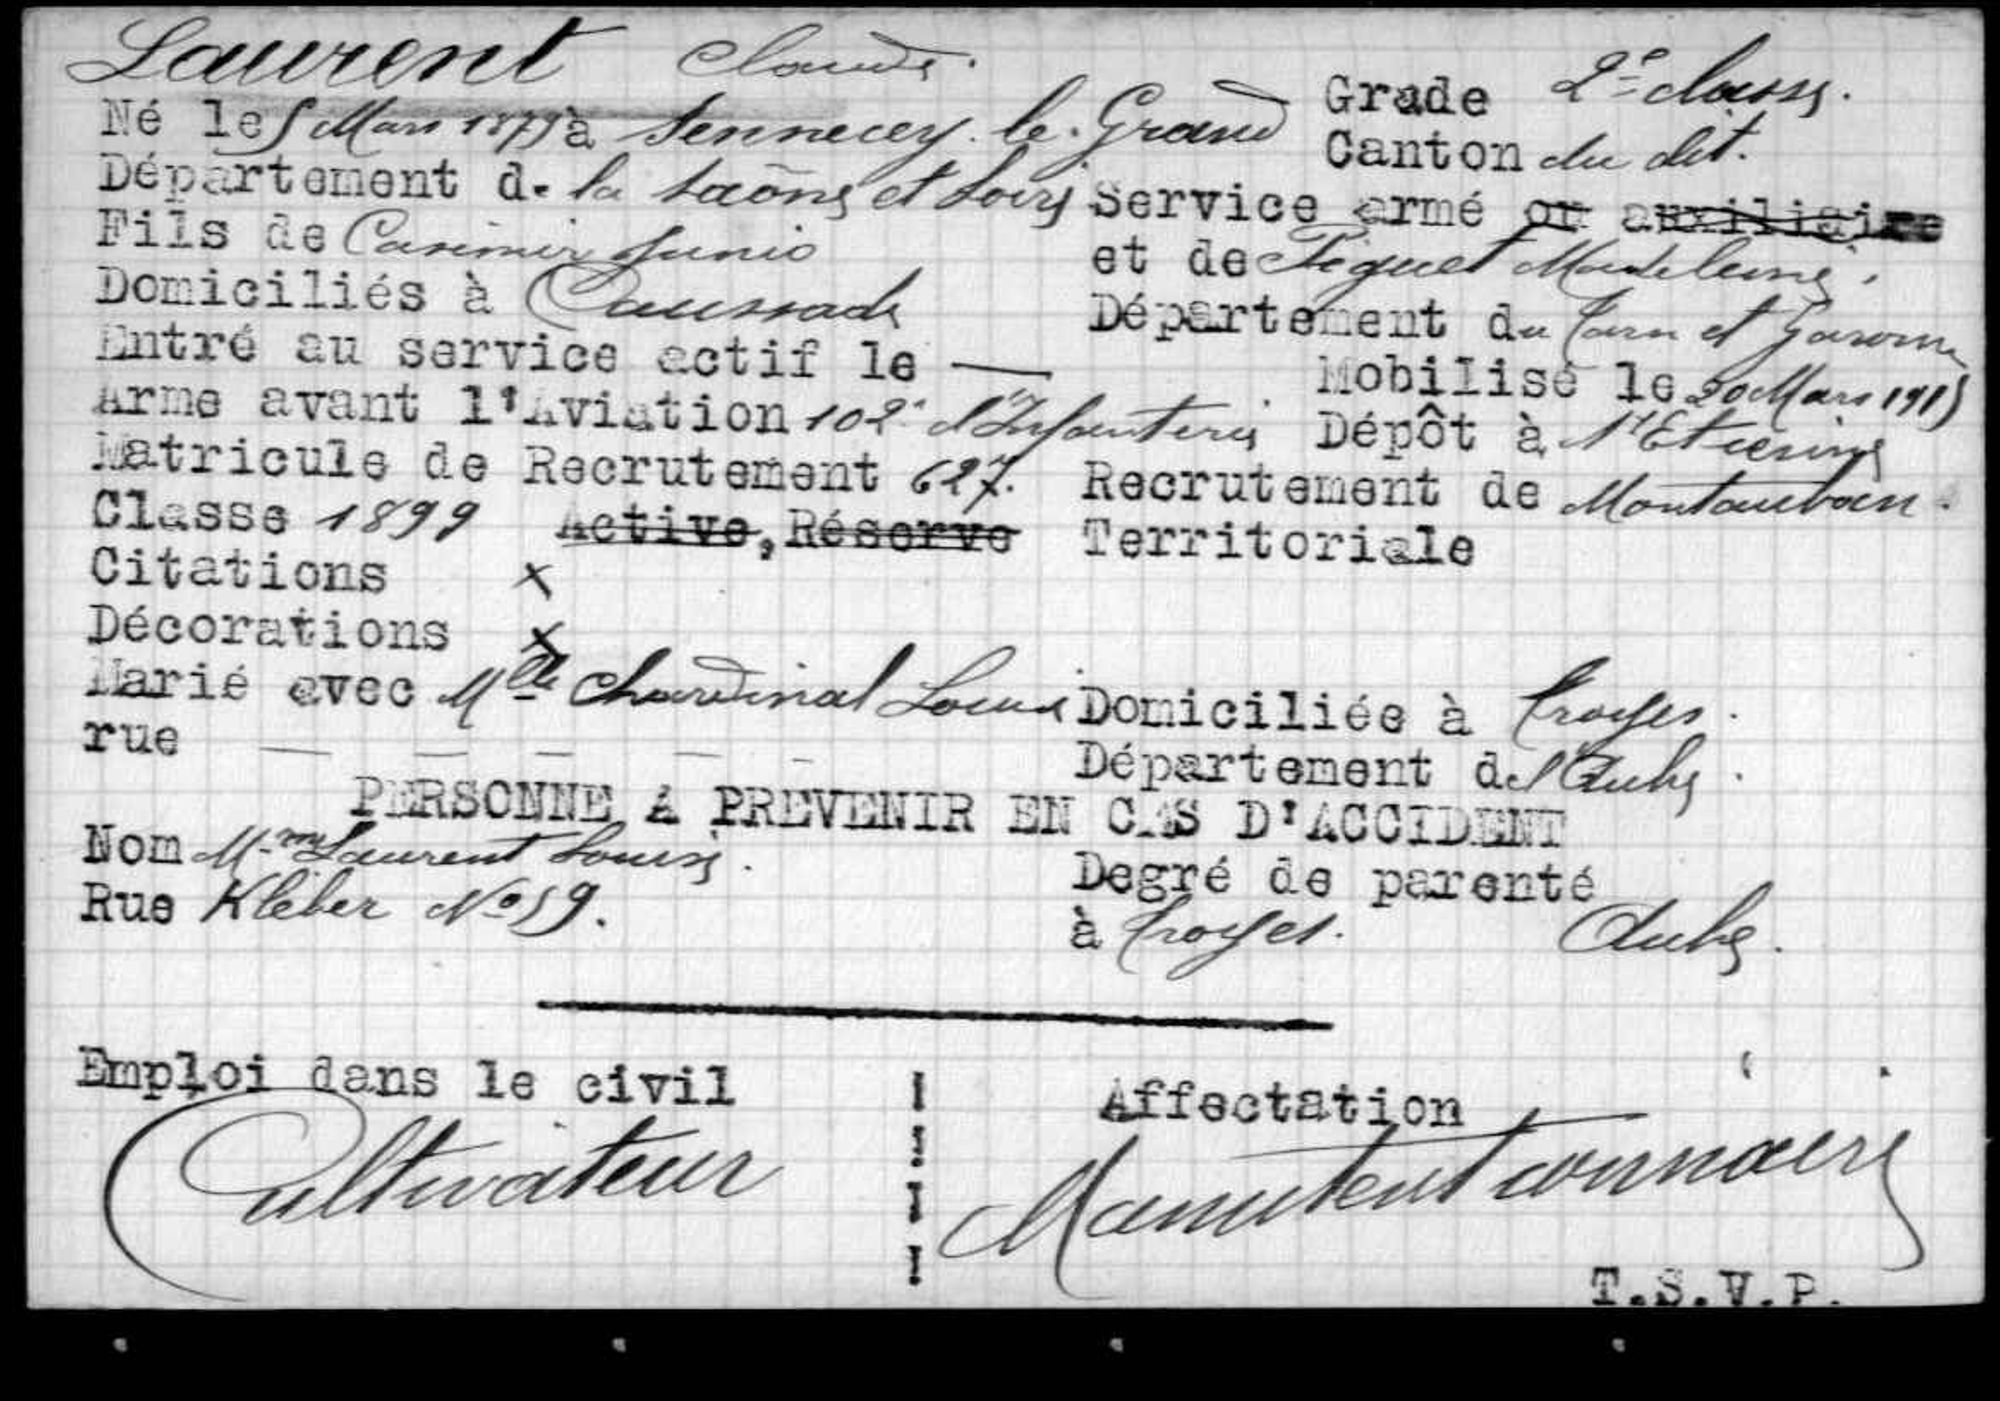 Laurent Claude.
Grade 2e classe.
Né le 5 Mars 1879 à Sennecey le Grand
Canton du dit.
Département d. la Saône et Loire
Service armé ou auxiliaire
Fils de Casimir Junio
et de Piguet Madeleine.
Domiciliés à Caussade
Département du Tarn et Garonne
Entré au service actif le —
Mobilisé le 20 Mars 1915
Arme avant l'Aviation 102e d'Infanterie
Dépôt à St Etienne
Matricule de Recrutement 627.
Recrutement de Montauban.
Classe 1899 Active, Réserve Territoriale
Citations x
Décorations x
Marié avec Mlle Chardinal Louise
Domiciliée à Troyes.
rue — — — — -
Département de l'Aube.
PERSONNE A PREVENIR EN CAS D'ACCIDENT
Nom Mme Laurent Louise.
Degré de parenté
Rue Kléber No 59.
à Troyes. Aube.
Emploi dans le civil
Affectation
Cultivateur
Manutentionnaire
T.S.V.P.